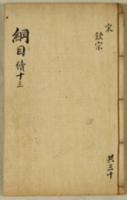 宋
欽宗
綱目續十三
共三十